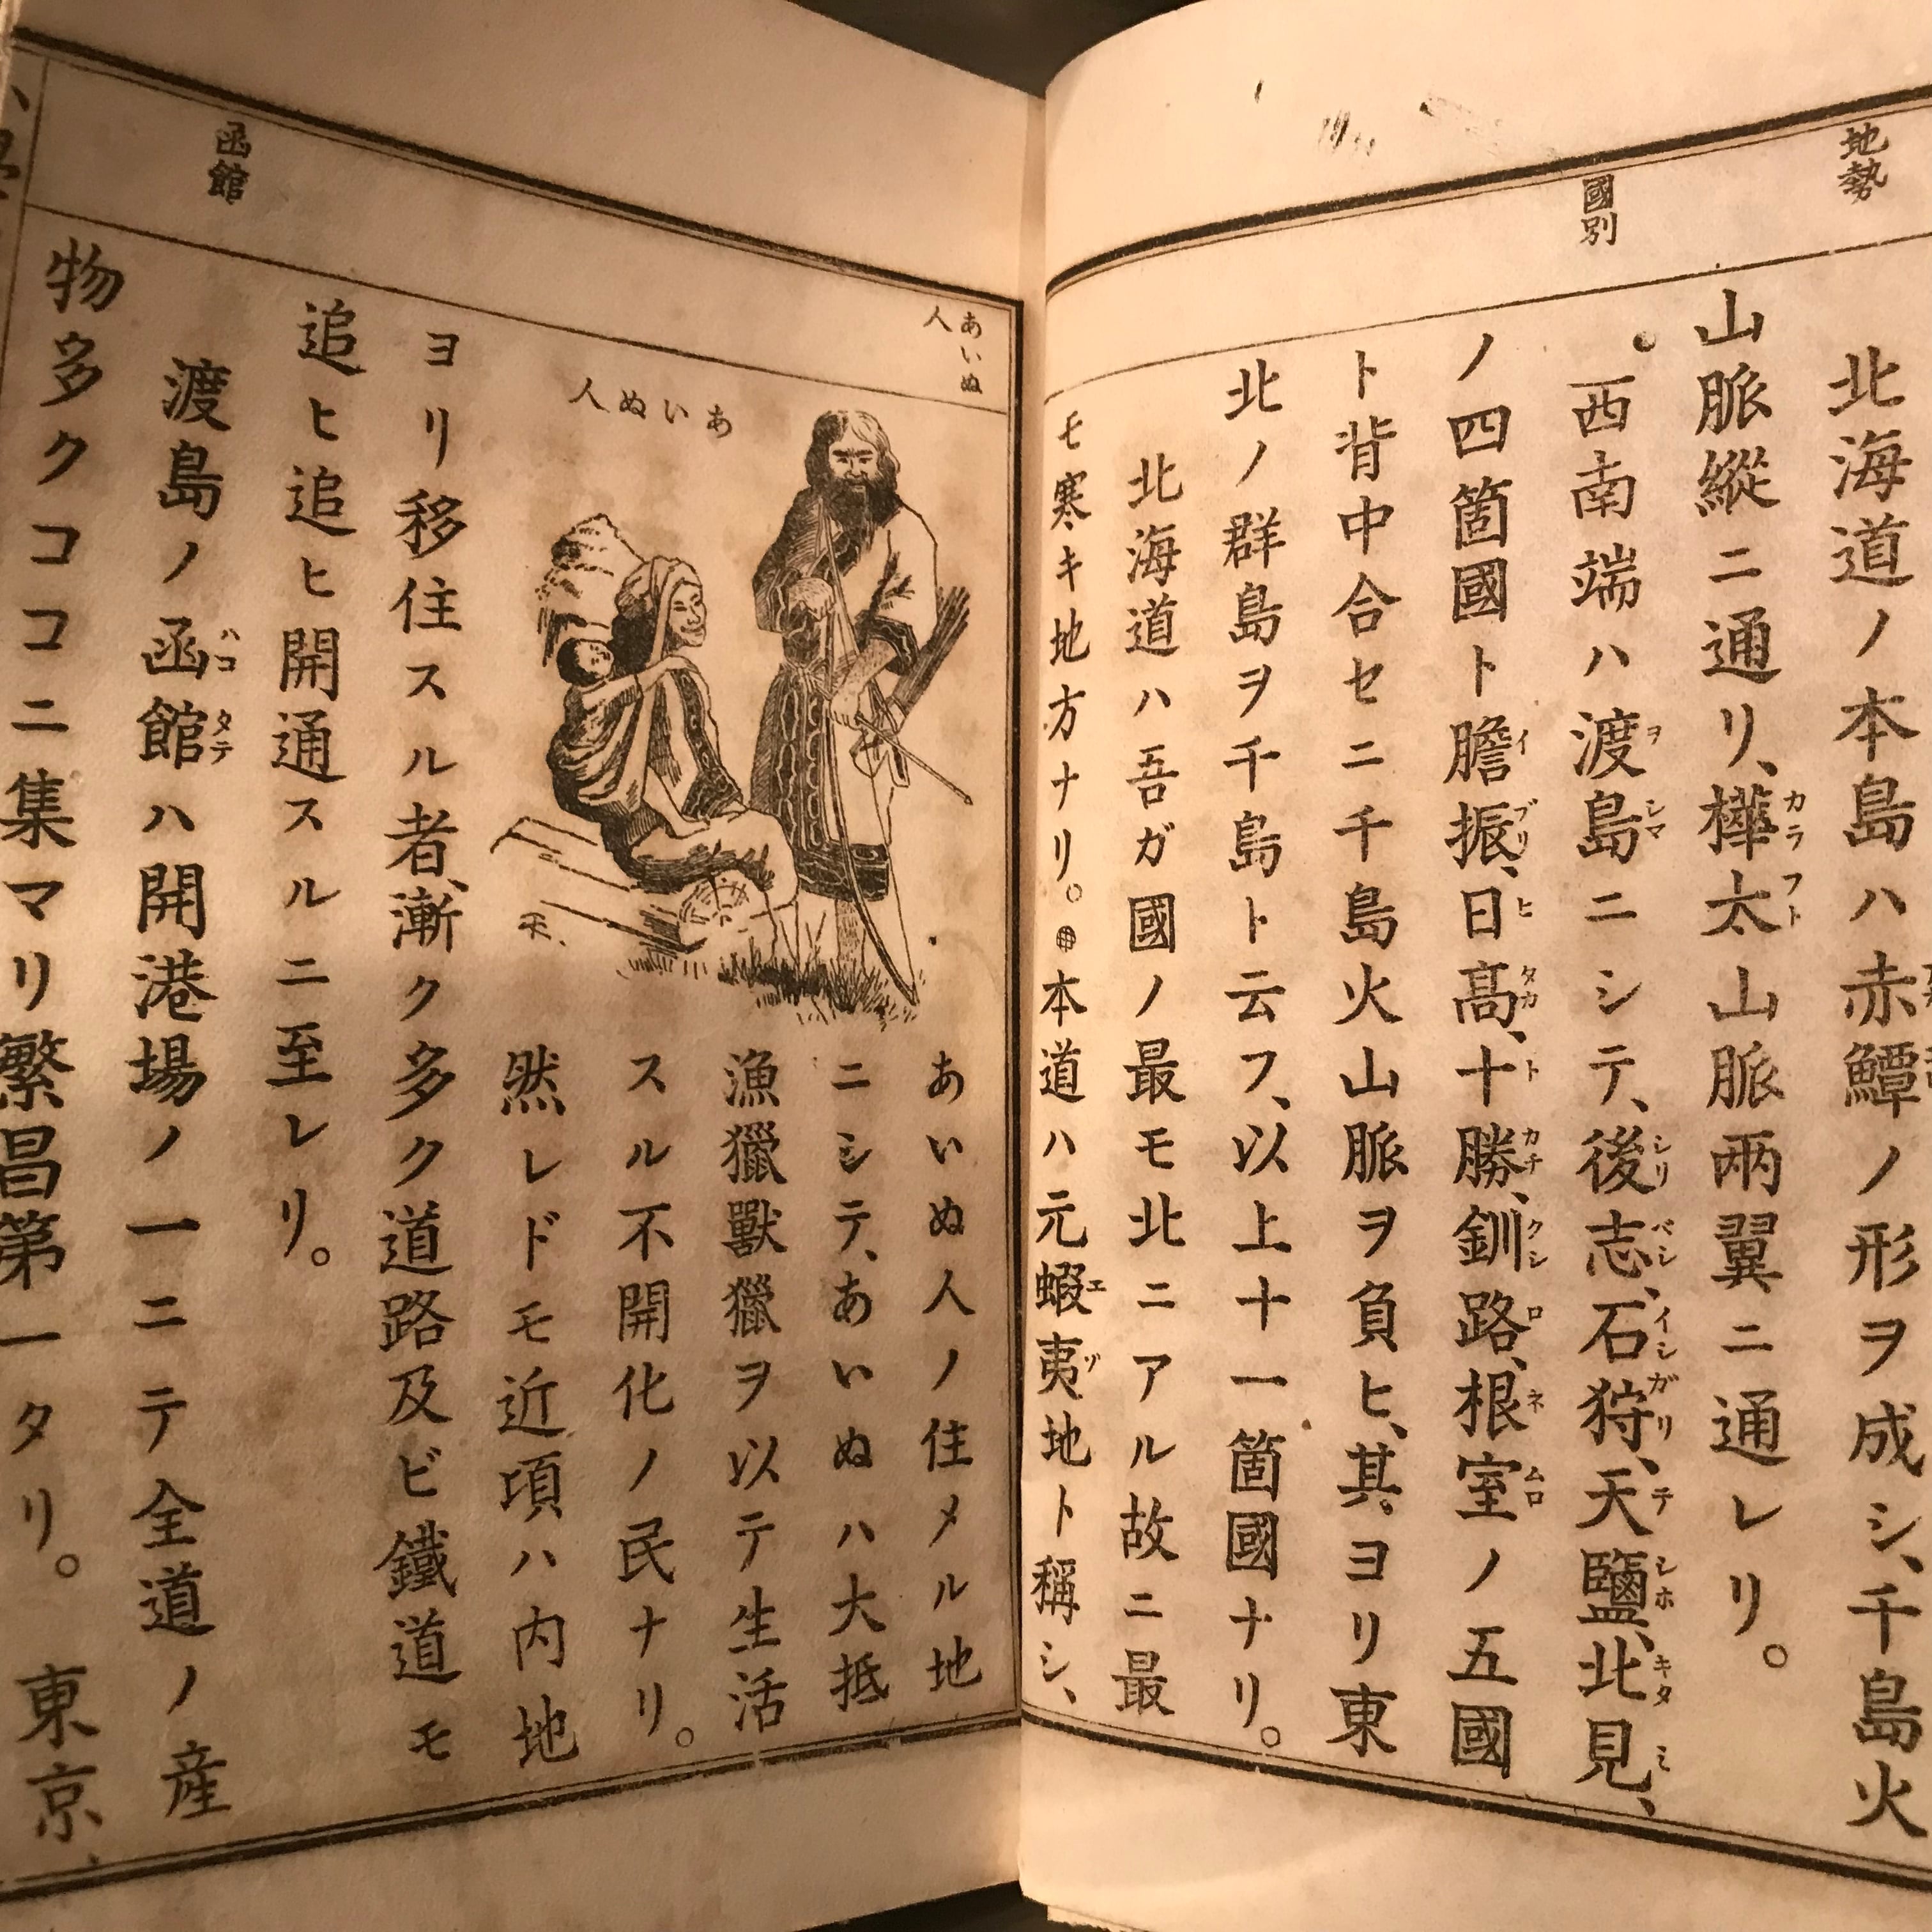 地勢
北海道ノ本島ハ赤鱏ノ形ヲ成シ、千島火
山脈縱ニ通リ、樺太山脈兩翼ニ通レリ。
カラフト
國別
西南端ハ渡島ニシテ、後志、石狩、天鹽、北見、
ヲシマ シリベシ イシガリ テシホ キタミ
ノ四箇國ト膽振、日高、十勝、釧路、根室ノ五國
イブリ ヒタカ トカチ クシロ ネムロ
ト背中合セニ千島火山脈ヲ負ヒ、其ヨリ東
北ノ群島ヲ千島ト云フ、以上十一箇國ナリ。
北海道ハ吾ガ國ノ最モ北ニアル故ニ最
モ寒キ地方ナリ。本道ハ元蝦夷地ト稱シ、
エゾ
あいぬ人
あいぬ人
あいぬ人ノ住メル地
ニシテ、あいぬハ大抵
漁獵獸獵ヲ以テ生活
スル不開化ノ民ナリ。
然レドモ近頃ハ内地
ヨリ移住スル者、漸ク多ク道路及ビ鐵道モ
追ヒ追ヒ開通スルニ至レリ。
函館
渡島ノ函館ハ開港場ノ一ニテ全道ノ産
ハコタテ
物多クココニ集マリ繁昌第一タリ。東京、